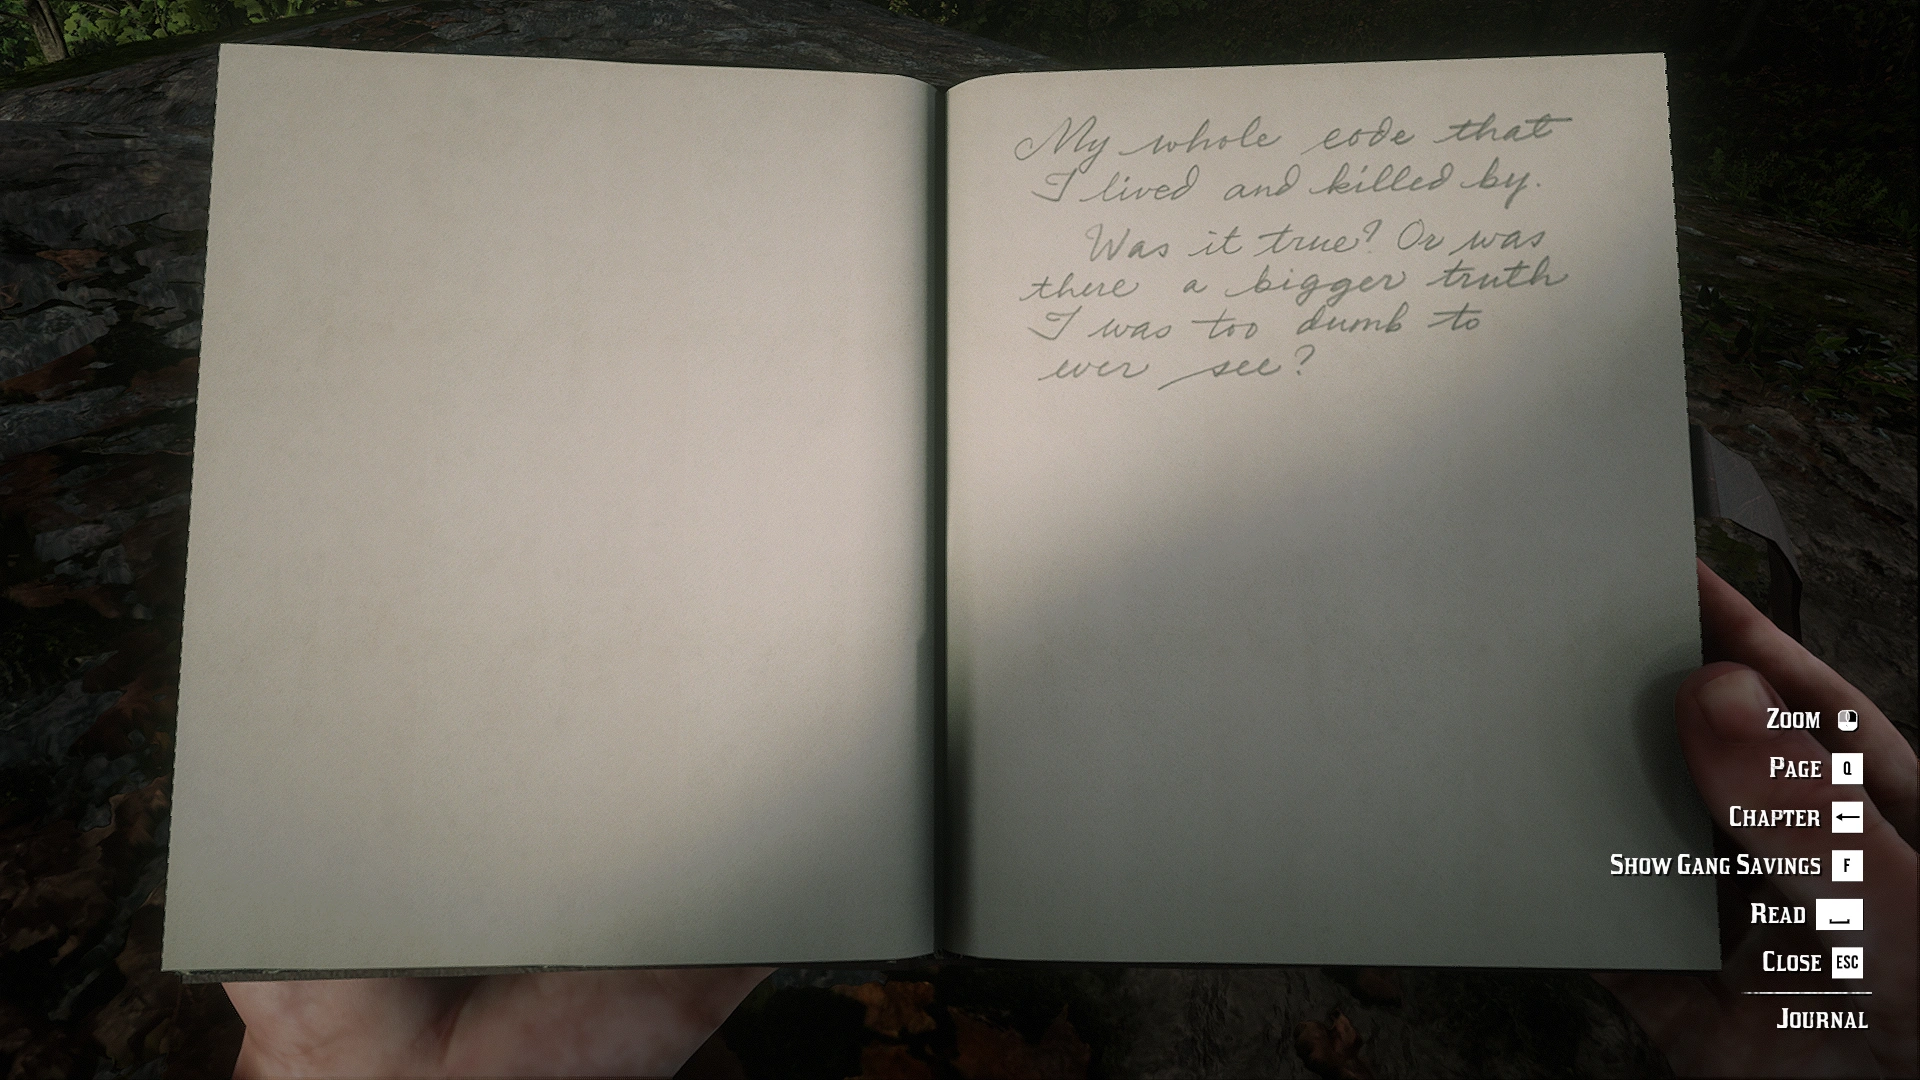 My whole code that
I lived and killed by.
Was it true? Or was
there a bigger truth
I was too dumb to
ever see?
ZOOM
PAGE Q
CHAPTER ←
SHOW GANG SAVINGS F
READ
CLOSE ESC
JOURNAL